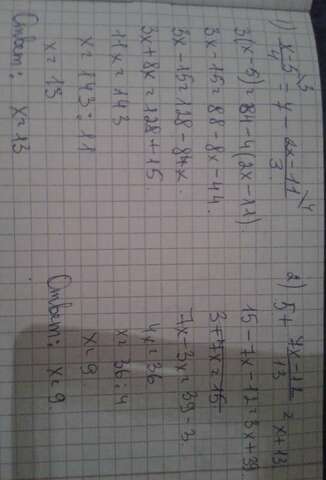 1) x-5/4 \3 = 7 - 2x-11/3 \4
3(x-5)=84-4(2x-11)
3x-15=88-8x-44.
3x-15=128-84x.
3x+8x=128+15.
11x=143
x=143:11
x=13
Ответ: x=13
2) 5+ 7x-12/13 = x+13
15-7x-12=3x+39
3+7x=15
7x-3x=39-3
4x=36
x=36:4
x=9
Ответ: x=9.